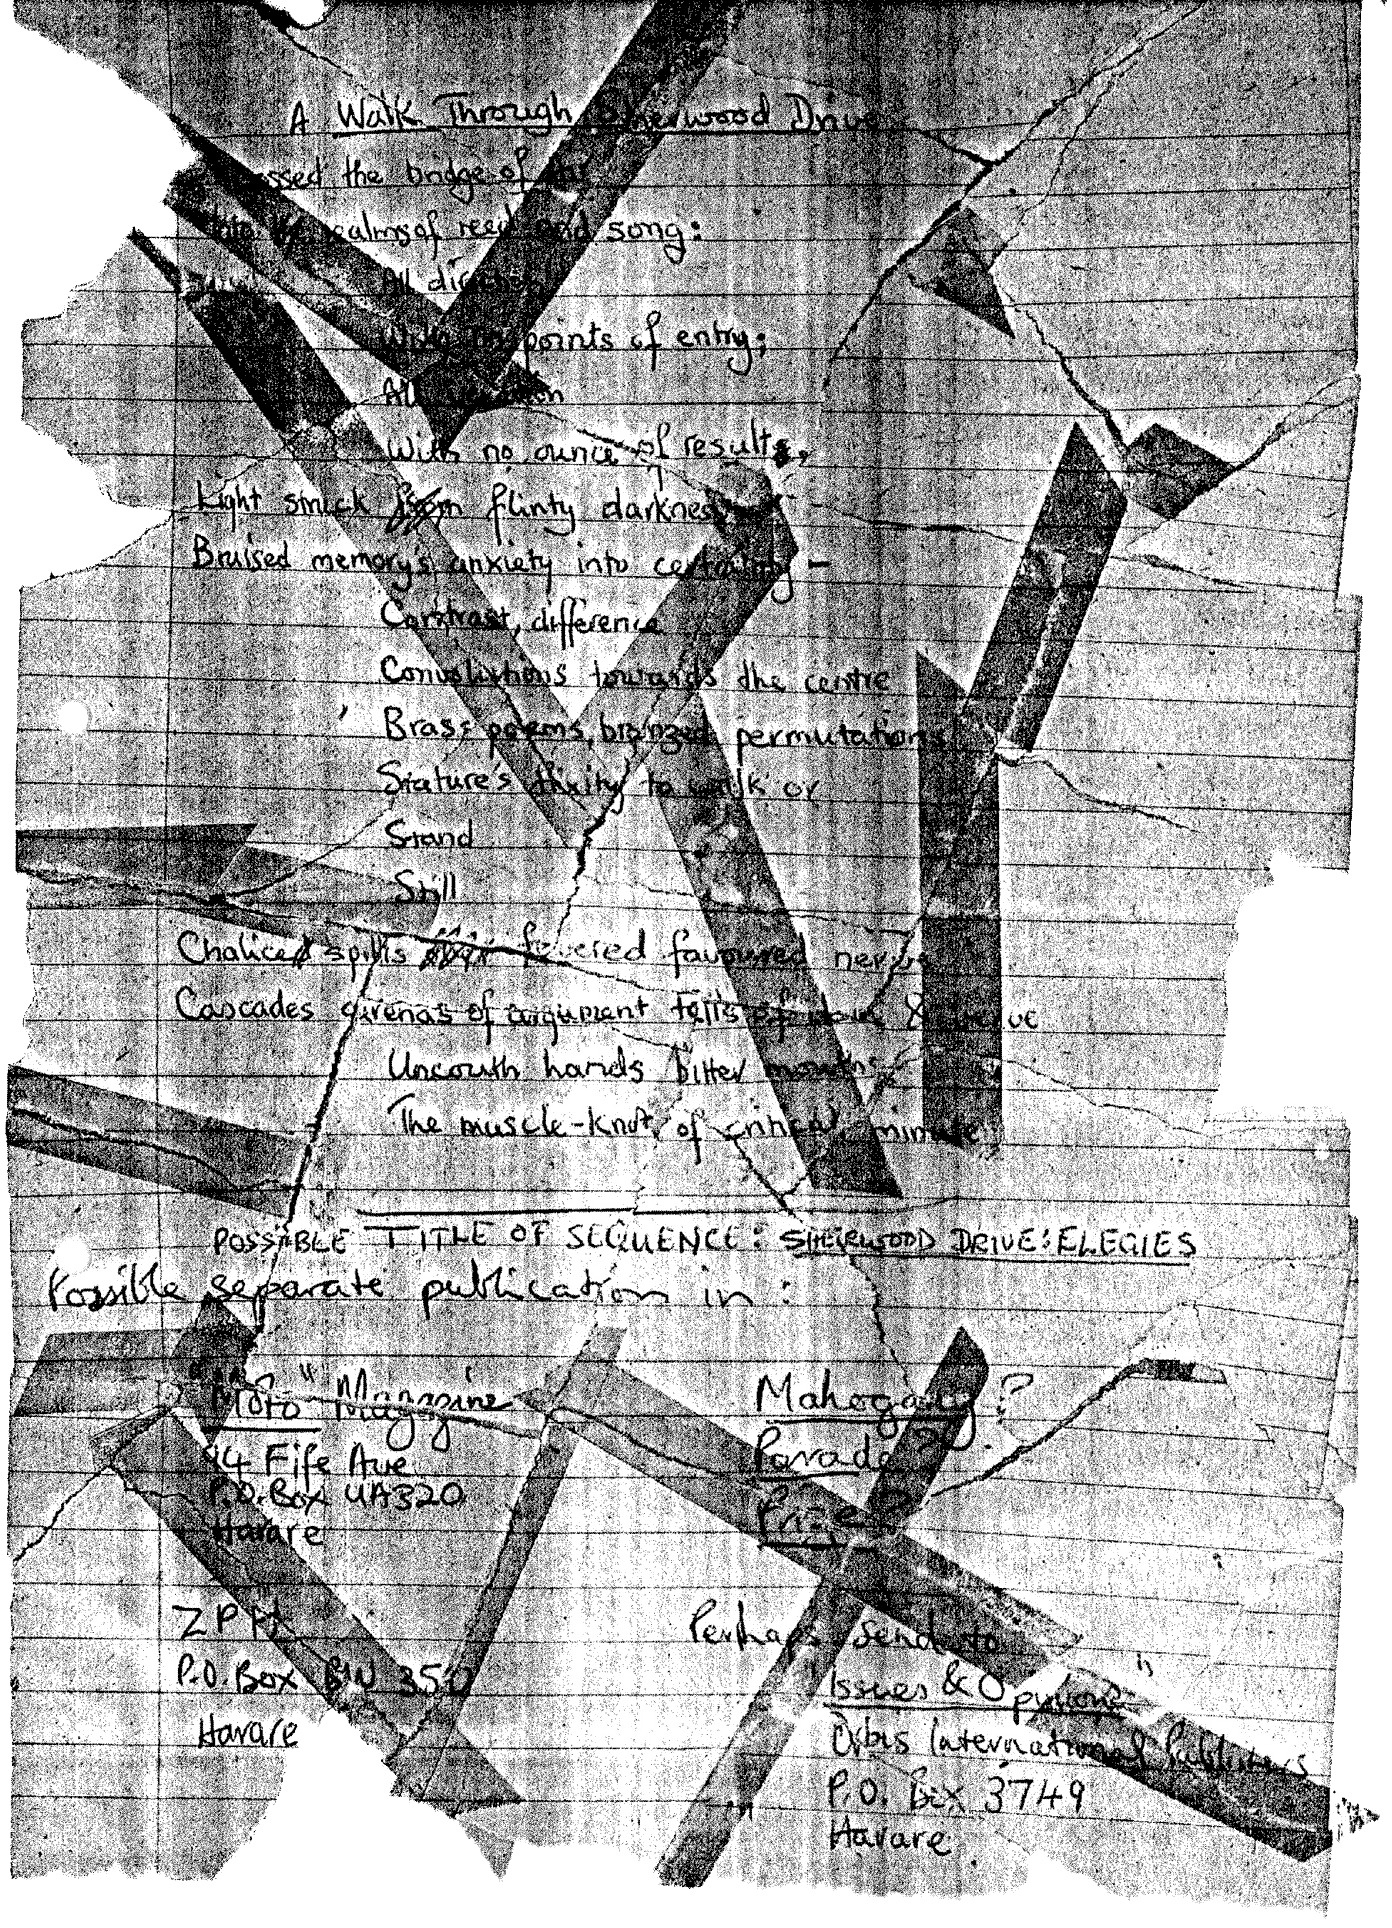 A Walk Through Sherwood Drive
the bridge of
realms of reed and song:
All direction
With no points of entry;
All
With no ounce of results,
Light struck from flinty darkness
Bruised memory's anxiety into certainty –
Contrast, difference
Convolutions towards the centre
Brass poems, bronzed permutations
Stature's fixity to walk or
Stand
Still
Chaliced spills fevered favoured nerve
Cascades arenas of argument tells of &
Uncouth hands bitter mouths
The muscle-knot of critical minute
POSSIBLE TITLE OF SEQUENCE: SHERWOOD DRIVE: ELEGIES
Possible separate publication in:
"Moto" Magazine
Mahogany?
94 Fife Ave
Parade?
P.O. Box UA320
Prize?
Harare
ZPH
Perhaps send to
P.O. Box BW 350
"Issues & Opinions"
Harare
Orbis International Publishers
P.O. Box 3749
Harare